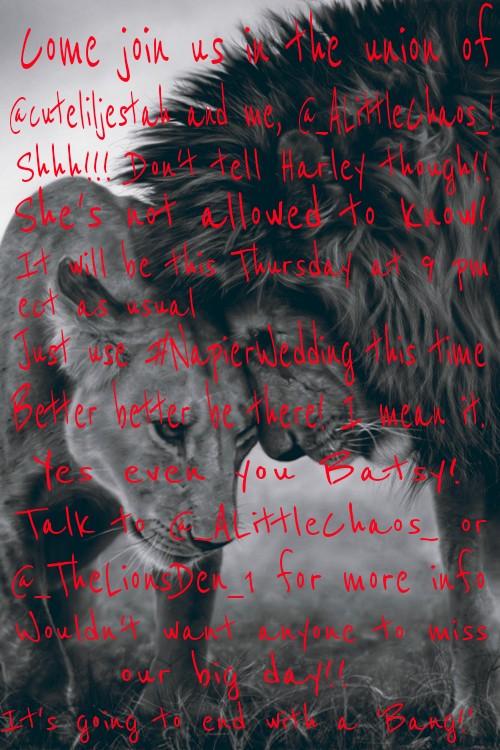 Come join us in the union of
@cuteliljestah and me, @_ALittleChaos_!
Shhh!!! Don't tell Harley though!!
She's not allowed to know!
It will be this Thursday at 9 pm
ect as usual
Just use #NapierWedding this time
Better better be there! I mean it.
Yes even you Batsy!
Talk to @_ALittleChaos_ or
@_TheLionsDen_1 for more info
Wouldn't want anyone to miss
our big day!!
It's going to end with a 'Bang!'